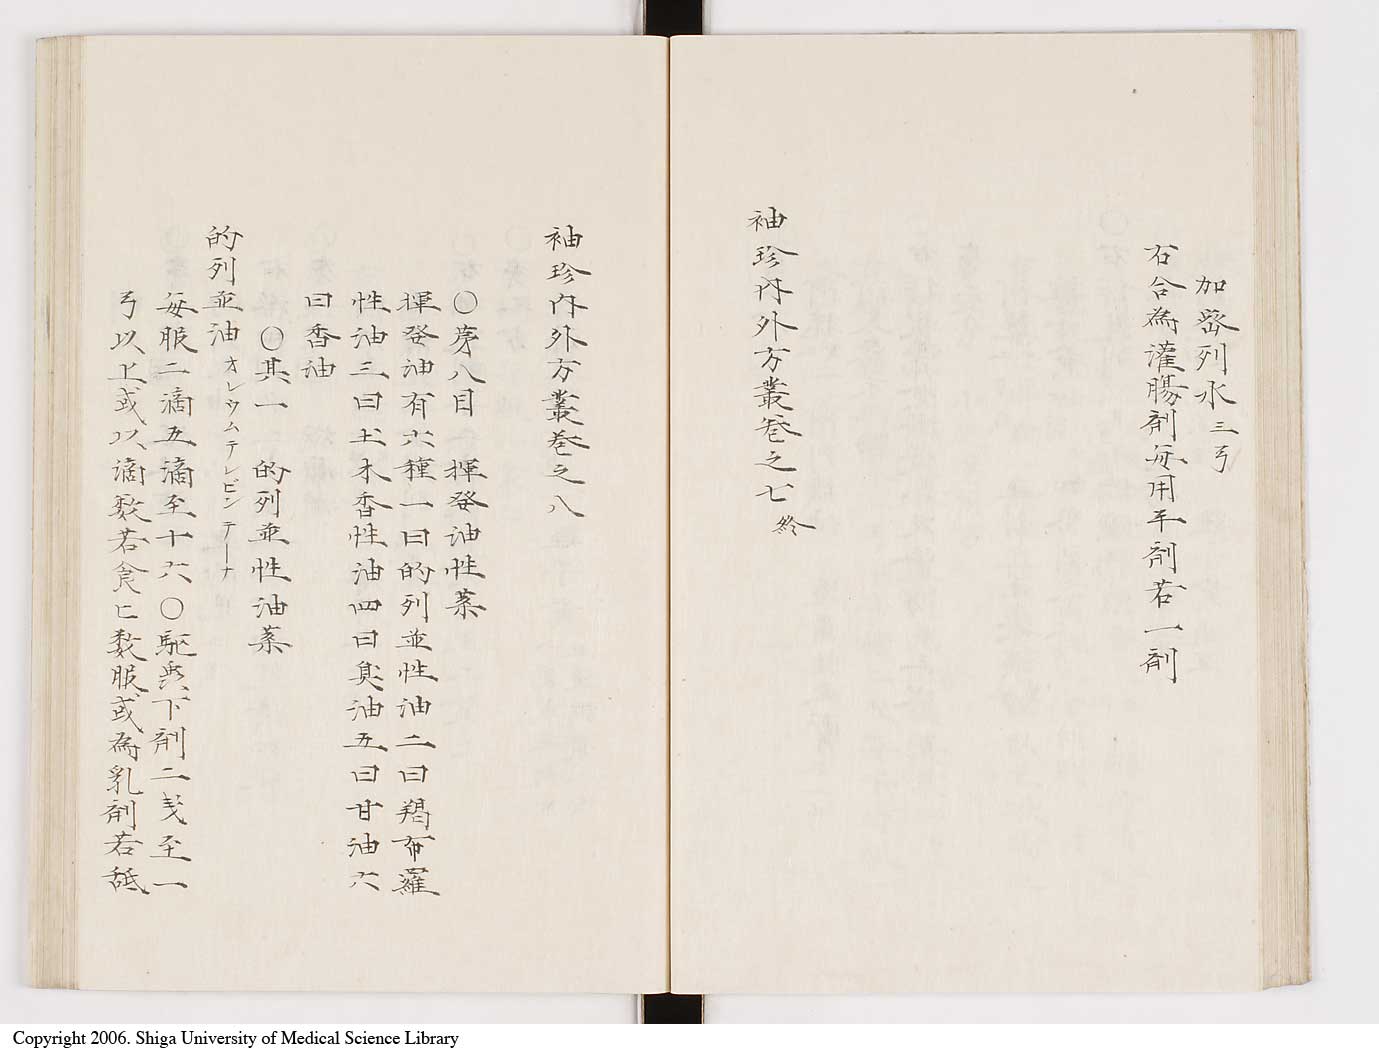 加密列水 三弓
右合為灌腸剤毎用半剤若一剤
袖珍内外方叢巻之七 終
袖珍内外方叢巻之八
〇第八目 揮発油性薬
揮発油有六種一曰的列並性油二曰羯布羅
性油三曰土木香性油四曰臭油五曰甘油六
曰香油
〇其一 的列並性油薬
的列並油 オレウムテレビンテーナ
毎服二滴五滴至十六〇駆虫下剤二戔至一
弓以上或以滴数若食匕数服或為乳剤若舐
Copyright 2006. Shiga University of Medical Science Library